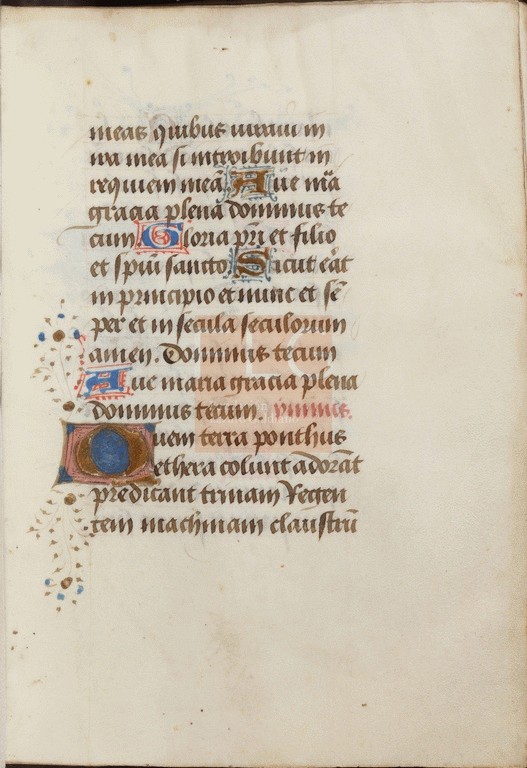 meas quibus iuravi in
ira mea si introibunt in
requiem meā Ave mīa
gracia plena dominus te
cum Gloria pri et filio
et spui sancto Sicut eāt
in principio et nunc et sē
per et in secula seculorum
amen. Dominus tecum
Ave maria gracia plena
dominus tecum ymnus.
Quem terra ponthus
ethera colunt adorāt
predicant trinam Regen
tem machinam claustrū